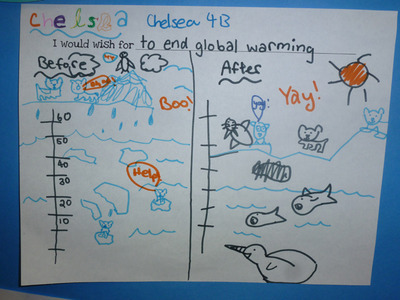 Chelsea Chelsea 4B
I would wish for to end global warming
Before
After
Boo!
Yay!
60
50
40
30
20
10
Help